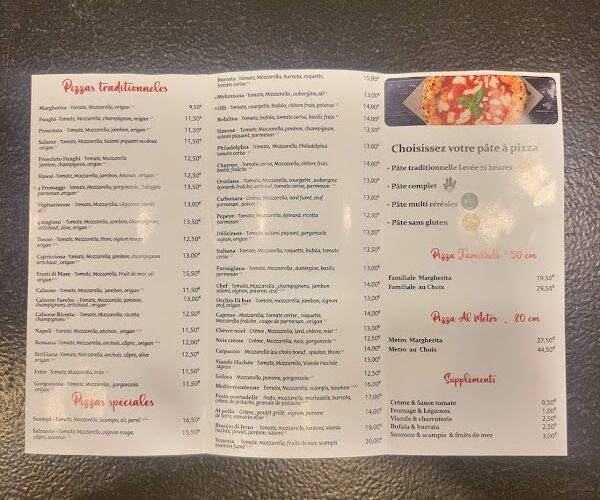 Pizzas traditionneles
Margherita - Tomate, Mozzarella, origan 9,50€
Funghi - Tomate, Mozzarella, champignon, origan 11,50€
Prosciuto - Tomate, Mozzarella, jambon, origan 11,50€
Salame - Tomate, Mozzarella, Salami piquant ou doux
origan 11,50€
Prosciuto Funghi - Tomate, Mozzarella
jambon, champignon, origan 12,50€
Hawai - Tomate, Mozzarella, jambon, Ananas, origan 12,50€
4 Fromaggi - Tomate, Mozzarella, gorgonzola, Taleggio
parmesan, origan 13,50€
Végétarienne - Tomate, Mozzarella, Légumes variés
ail 13,00€
4 stagioni - Tomate, Mozzarella, jambon, champignon,
artichaut, olive, origan 13,50€
Tonno - Tomate, Mozzarella, thon, oignon rouge
origan 13,00€
Capricciosa - Tomate, Mozzarella, jambon, champignon
artichaut, origan 13,00€
Frutti di Mare - Tomate, Mozzarella, Fruit de mer, ail
origan 15,50€
Calzone - Tomate, Mozzarella, jambon, origan 11,50€
Calzone Farcito - Tomate, Mozzarella, jambon,
champignons, artichaut, origan 13,00€
Calzone Ricotta - Tomate, Mozzarella, ricotta
champignons 12,50€
Napoli - Tomate, Mozzarella, anchois, origan 11,50€
Romana - Tomate, Mozzarella, anchois, câpre, origan 12,00€
Siciliana - Tomate, Mozzarella, anchois, câpre, olive
origan 12,50€
Frite - Tomate, Mozzarella, Frite 11,50€
Gorgonzola - Tomate, Mozzarella, gorgonzola
origan 11,50€
Pizzas spéciales
Scampi - Tomate, Mozzarella, Scampis, ail, persil 16,50€
Salmone - Tomate, Mozzarella, oignon rouge,
câpre, saumon 15,50€
Burrata - Tomate, Mozzarella, Burrata, roquette,
tomate cerise 15,00€
Melanzana - Tomate, Mozzarella, aubergine, ail 13,00€
Olli - Tomate, courgette, Bufala, chèvre frais, poivron 14,00€
Bufalina - Tomate, Bufala, tomate cerise, basilic frais 14,00€
Simone - Tomate, Mozzarella, jambon, champignon,
salami piquant, parmesan 13,50€
Philadelphia - Tomate, Mozzarella, Philadelphia
tomate cerise 14,00€
Chevron - Tomate cerise, Mozzarella, chèvre frais
basilic frais 14,00€
Ortolana - Tomate, Mozzarella, courgette, aubergine
épinards fraiche, artichaut, tomate cerise, parmesan 14,00€
Carbonara - Crème, Mozzarella, lard fumé, œuf
poivre 13,00€
Popeye - Tomate, Mozzarella, épinard, ricotta
parmesan 12,50€
Délicieuse - Tomate, salami piquant, gorgonzola
oignon, origan 13,00€
Italiana - Tomate, Mozzarella, roquette, bufala, tomate
cerise 13,50€
Parmigiana - Tomate, Mozzarella, aubergine, basilic
parmesan 13,00€
Chef - Tomate, Mozzarella, champignons, jambon
salami, oignon, poivron, œuf 14,00€
Occhio Di bue - Tomate, Mozzarella, jambon, oignon
œuf, origan 13,00€
Caprese - Tomate, Mozzarella, Tomate cerise, roquette,
Mozzarella fraiche, coupe de parmesan, origan 14,00€
Chèvre miel - Crème, Mozzarella, lard, chèvre, miel 13,00€
Noix crème - Crème, Mozzarella, noix, gorgonzola 12,50€
Carpaccio - Mozzarella (au choix boeuf, espadon, thon) 14,00€
Viande Hachée - Tomate, Mozzarella, Viande Hachée
oignon 13,00€
Golosa - Mozzarella, pomme, gorgonzola 12,50€
Mediterranéenne - Tomate, Mozzarella, scampis, Saumon 16,00€
Pesto mortadelle - Pesto, mozzarella, mortadelle, burrata,
crème de pistache, granule de pistache 17,00€
Al pollo - Crème, poulet grillé, oignon, pomme
de terre, romarin, olive 14,00€
Braccio di ferro - tomate, mozzarella, lardons, viande
hachée, poulet, jambon, salami 19,00€
Venezia - Tomate, mozzarella, fruits de mer, scampis
saumon fumé 20,00€
Choisissez votre pâte à pizza
• Pâte traditionnelle Levée 72 heures
• Pâte complet
• Pâte multi céréales
• Pâte sans gluten
Pizza Familiale - 50 cm
Familiale Margherita 19,50€
Familiale au Choix 29,50€
Pizza Al Metro _ 80 cm
Metro Margherita 27,50€
Metro au Choix 44,50€
Suppléments
Crème & Sauce tomate 0,50€
Fromage & Légumes 1,00€
Viande & charcuterie 2,50€
Bufala & burrata 2,50€
Saumon & scampis & fruits de mer 3,00€